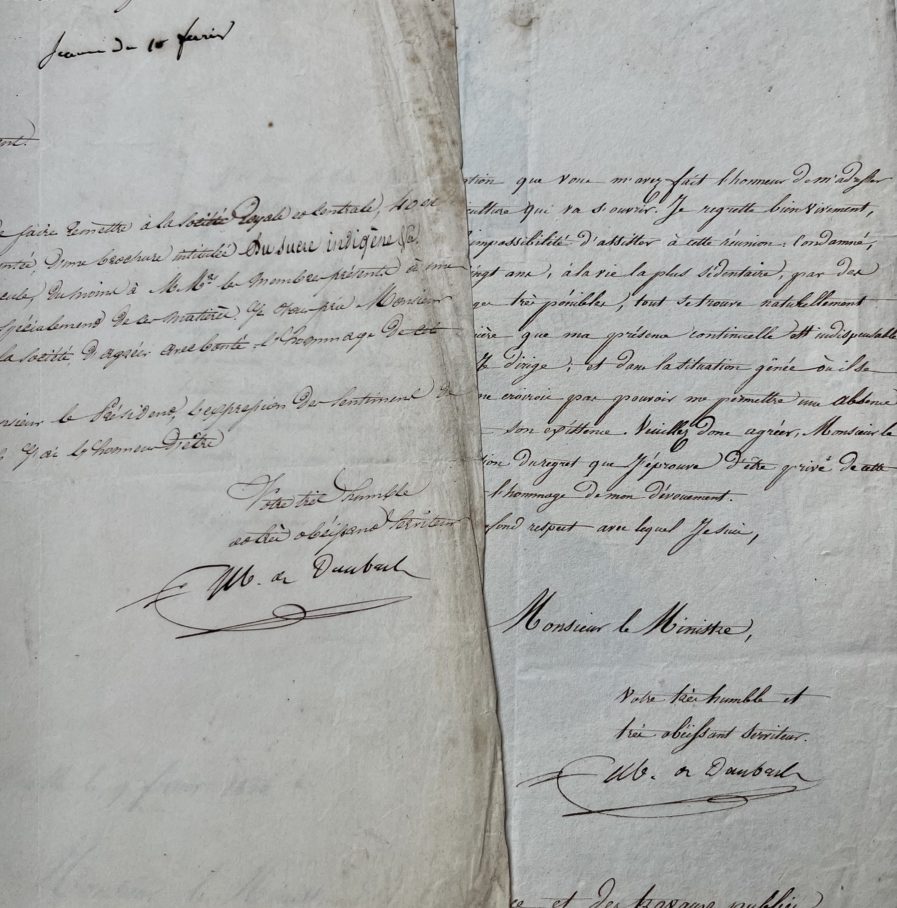 Séance du 10 février
ent.
faire remettre à la société royale et centrale, 40 ex
d'une brochure intitulée Du sucre indigène &a.
du moins à M.Mrs. les membres présents à une
spécialement de ces matières. J'ose
Monsieur
la société, d'agréer avec bonté l'hommage de cet
Monsieur le Président, l'expression des sentimens de
j'ai l'honneur d'être
Votre très humble
et très obéissant serviteur
M. de Dombasle
que vous m'avez fait l'honneur de m'adresser
culture qui va s'ouvrir. Je regrette bien vivement,
l'impossibilité d'assister à cette réunion. Condamné,
vingt ans, à la vie la plus sédentaire, par des
que très pénibles, tout se trouve naturellement
ière que ma présence continuelle est indispensable
Je dirige; et dans la situation gênée où il se
ne croirois pas pouvoir me permettre une absence
son existence. Veuillez donc agréer, Monsieur le
tion du regret que J'éprouve d'être privé de cette
l'hommage de mon dévouement.
fond respect avec lequel Je suis,
Monsieur le Ministre,
Votre très humble et
très obéissant serviteur.
M. de Dombasle
ce et des travaux publics